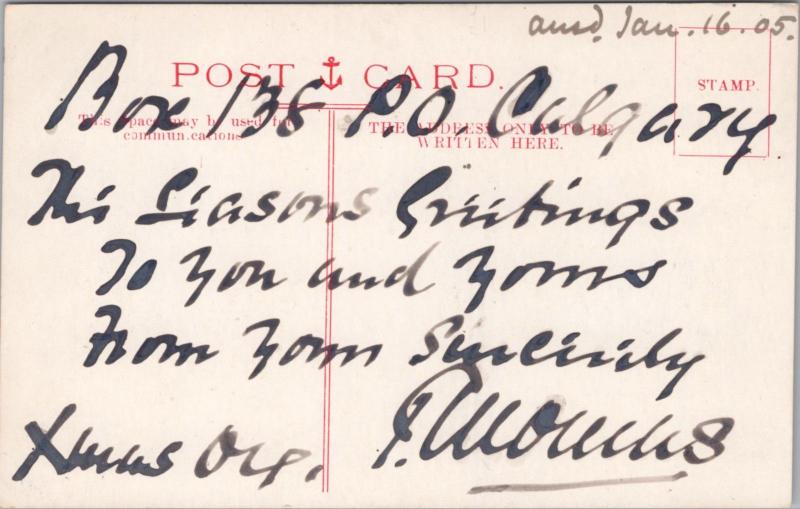 ansd. Jan. 16. 05.
POST CARD.
STAMP.
Box 138 P.O. Calgary
This space may be used for communications
THE ADDRESS ONLY TO BE WRITTEN HERE.
This Seasons Greetings
To You and Yours
From Yours Sincerely
Xmas 04.